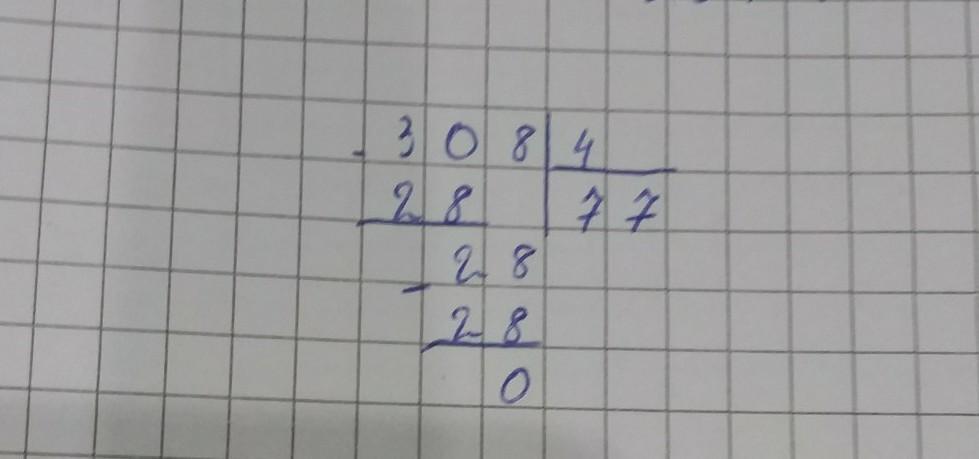 - 308 4
28 77
- 28
28
0